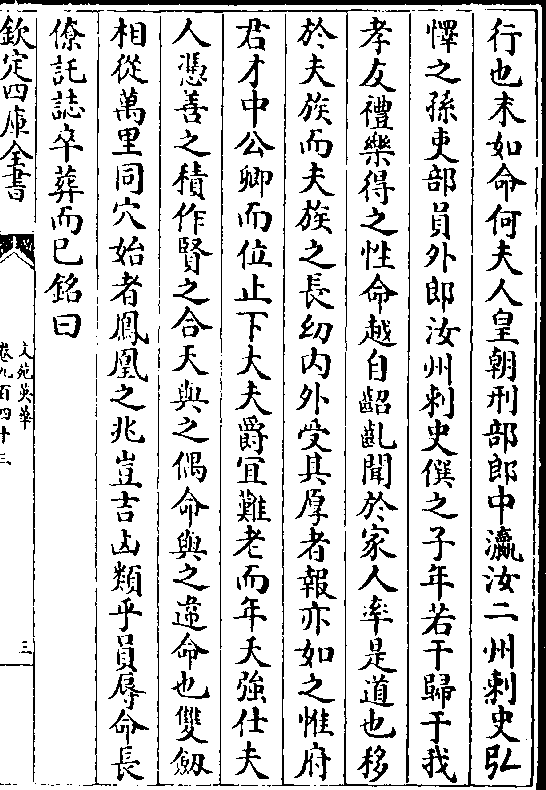 行也末如命何夫人皇朝刑部郎中瀛汝二州刺史弘
懌之孫吏部員外郎汝州刺史僎之子年若干歸于我
孝友禮樂得之性命越自齠齓聞於家人率是道也移
於夫族而夫族之長幼内外受其厚者報亦如之惟府
君才中公卿而位止下大夫爵宜難老而年夭強仕夫
人憑善之積作賢之合天與之偶命與之違命也雙劔
相從萬里同穴始者鳳凰之兆豈吉凶類乎員辱命長
僚託誌卒葬而已銘曰
欽定四庫全書
文苑英華
卷九百四十三
三